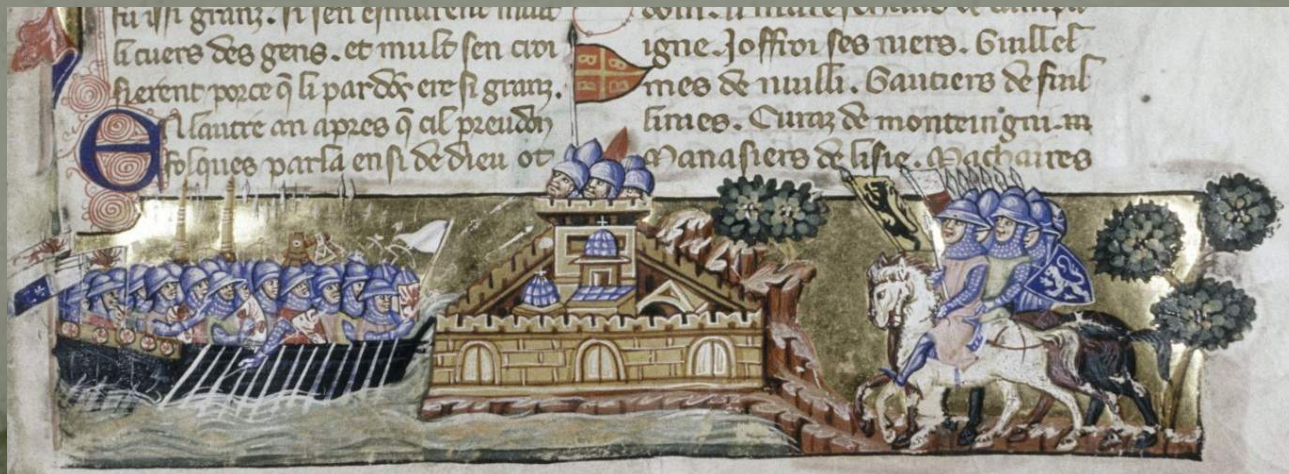 li cuers des gens. et mult sen croi
sierent porce q̃ li pardõs ere si granz.
En lautre an apres q̃ cil preudon
folques parla ensi de dieu ot
igne. Joffroi ses niers. Guillel
mes de nuilli. Gautiers de fuil
limes. Curaz de monteingni.
Manasiers de lisle. Machaires